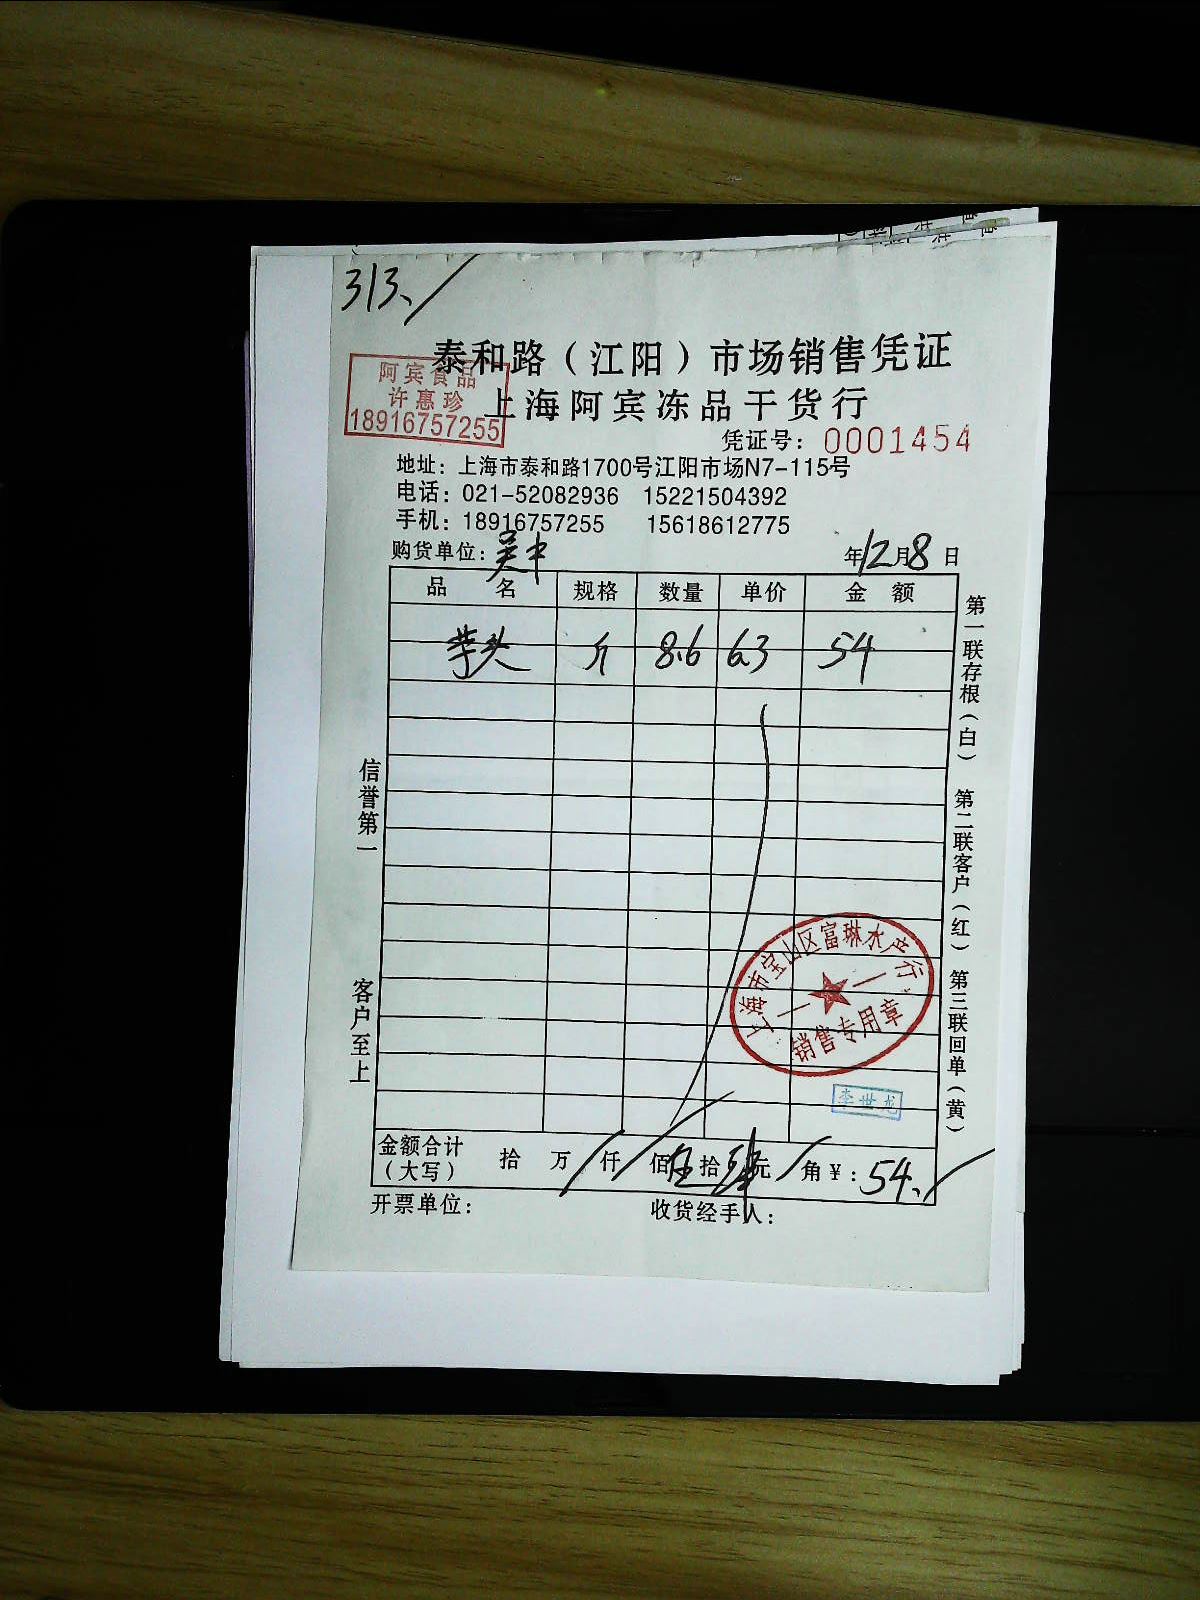 313、
泰和路（江阳）市场销售凭证
阿宾食品
许惠珍
18916757255
上海阿宾冻品干货行
凭证号：0001454
地址：上海市泰和路1700号江阳市场N7-115号
电话：021-52082936 15221504392
手机：18916757255 15618612775
购货单位：吴中 年12月8日
品名 规格 数量 单价 金额
芋头 斤 8.6 6.3 54
第一联存根（白） 第二联客户（红） 第三联回单（黄）
信誉第一
客户至上
上海市宝山区富琳水产行
销售专用章
李世龙
金额合计（大写） 拾 万 仟 佰 伍拾肆元 角 ¥：54、
开票单位： 收货经手人：